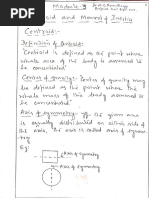 Module-3
Centroid and Moment of Inertia
Centroid:-
Definition of Centroid:-
Centroid is defined as the point where
whole area of the body is assumed to
be concentrated.
Center of gravity:- Center of gravity may
be defined as the point where the
whole mass of the body is assumed
to be concentrated.
Axis of symmetry:- If the given area
is equally distributed on either side of
the axis. The axis is called axis of symme-
try
Eg:
Axis of symmetry
Axis of symmetry